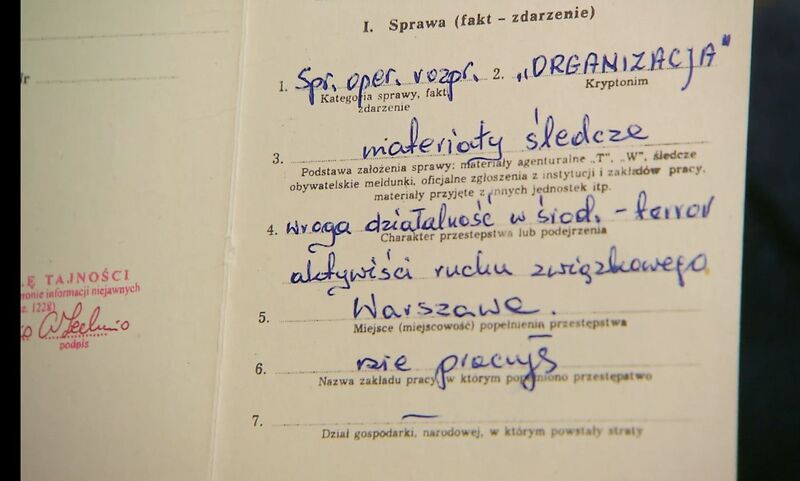 I. Sprawa (fakt – zdarzenie)
1. Spr. oper. rozpr. 2. „ORGANIZACJA"
Kategoria sprawy, fakt, zdarzenie
Kryptonim
3. materiały śledcze
Podstawa założenia sprawy: materiały agenturalne „T", „W", śledcze
obywatelskie meldunki, oficjalne zgłoszenia z instytucji i zakładów pracy,
materiały przyjęte z innych jednostek itp.
4. wroga działalność w środ. – terror
Charakter przestępstwa lub podejrzenia
aktywiści ruchu związkowego
5. Warszawa.
Miejsce (miejscowość) popełnienia przestępstwa
6. nie pracują
Nazwa zakładu pracy, w którym popełniono przestępstwo
7. —
Dział gospodarki, narodowej, w którym powstały straty
Ę TAJNOŚCI
ronie informacji niejawnych
z. 1228)
podpis